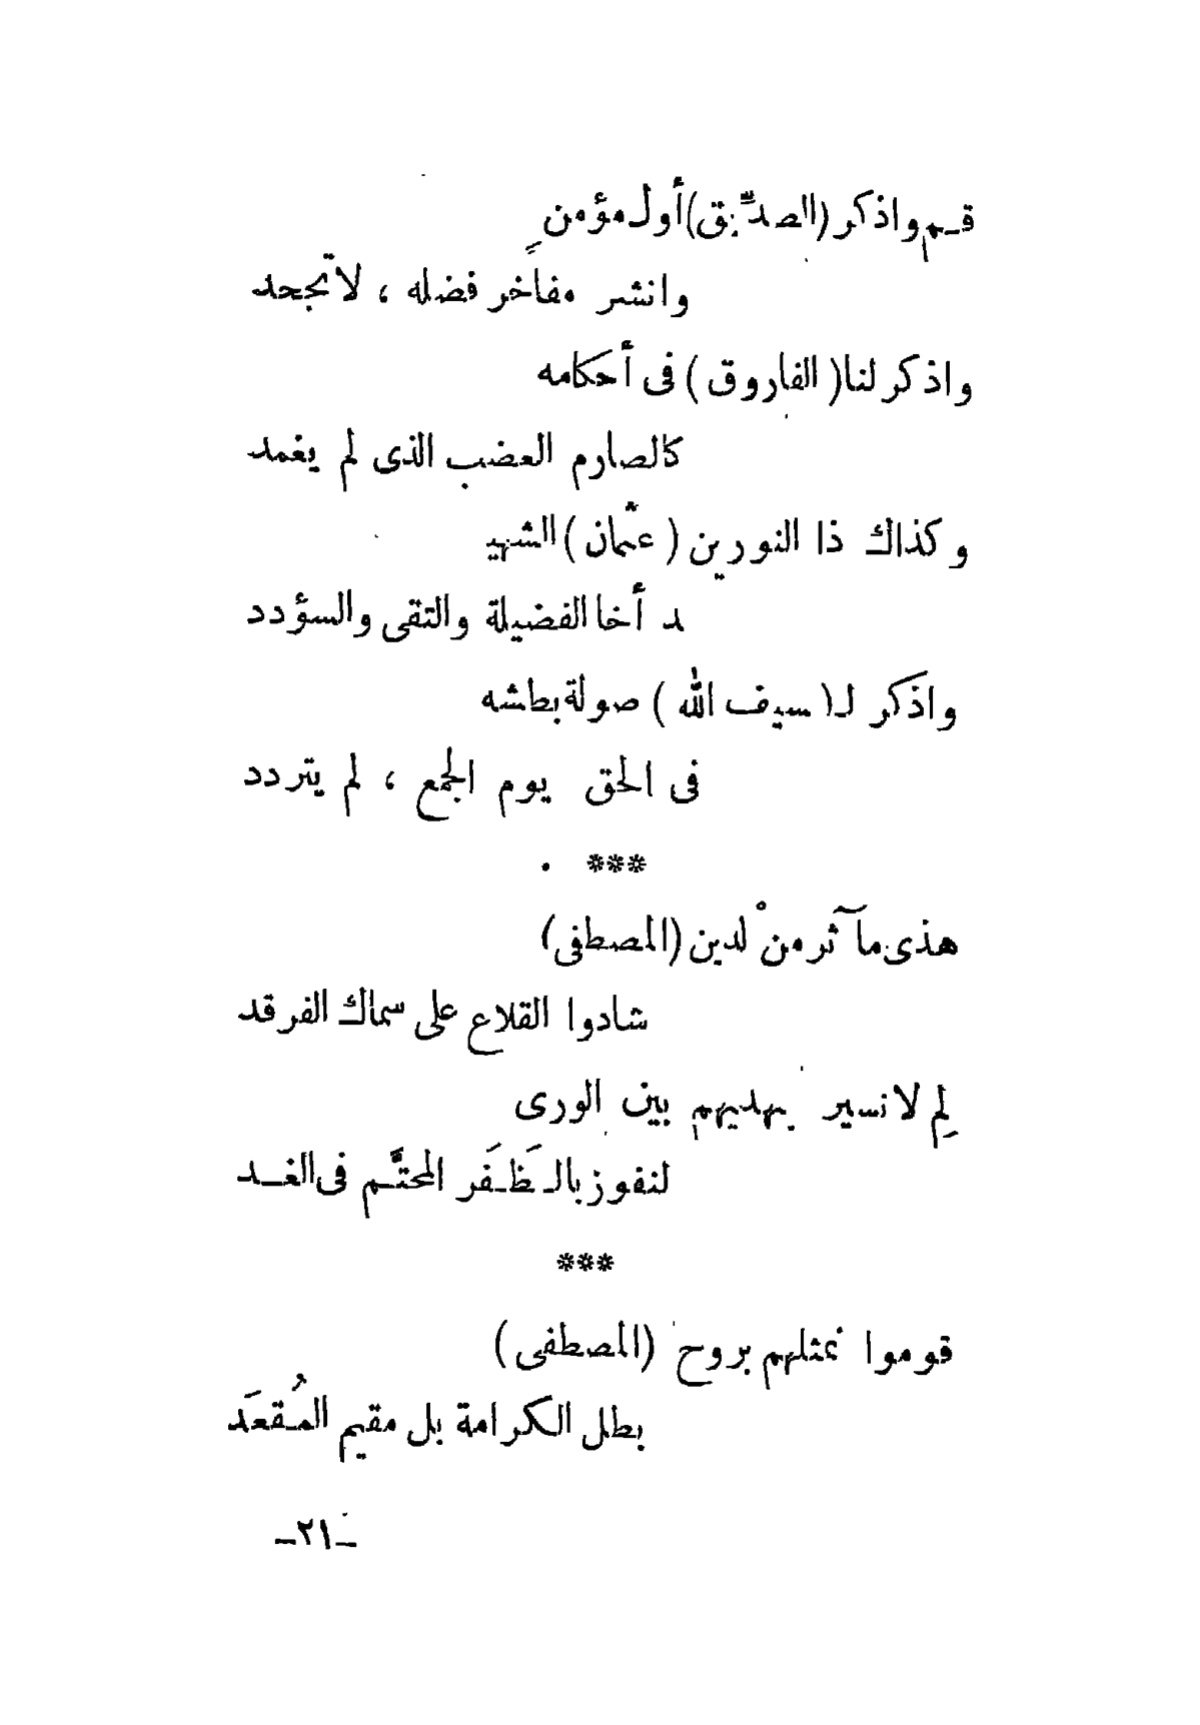 قـم واذكر (الصدِّيق) أول مؤمنٍ
وانشر مفاخر فضله ، لا تجحد
واذكر لنا ( الفاروق ) فى أحكامه
كالصارم العضب الذى لم يغمد
وكذاك ذا النورين ( عثمان ) الشهيـ
ـد أخا الفضيلة والتقى والسؤدد
واذكر لـ( سيف الله ) صولة بطشه
فى الحق يوم الجمع ، لم يتردد
***
هذى مآثر منْ لدين (المصطفى)
شادوا القلاع على سماك الفرقد
لِم لا نسير بهديهم بين الورى
لنفوز بالـظَـفَر المحتَّـم فى الغـد
***
قوموا نمثلهم بروح (المصطفى)
بطل الكرامة بل مقيم المُـقعَد
–٢١–